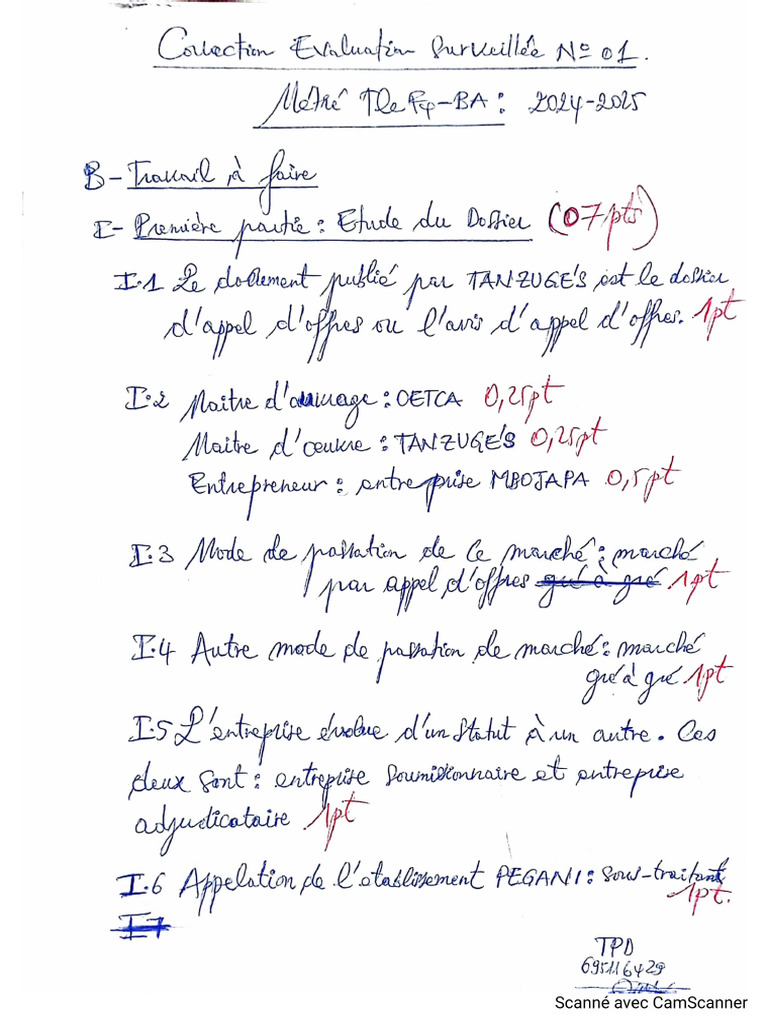 Correction Evaluation Surveillée N° 01.
Métré Tle F4-BA : 2024-2025
B- Travail à faire
I- Première partie : Etude du Dossier (07pts)
I.1 Le document publié par TANZUGE'S est le dossier
d'appel d'offres ou l'avis d'appel d'offres. 1pt
I.2 Maitre d'ouvrage : OETCA 0,25pt
Maitre d'œuvre : TANZUGE'S 0,25pt
Entrepreneur : entreprise MBOJAPA 0,5pt
I.3 Mode de passation de ce marché : marché
par appel d'offres gré à gré 1pt
I.4 Autre mode de passation de marché : marché
gré à gré 1pt
I.5 L'entreprise évolue d'un statut à un autre. Ces
deux sont : entreprise soumissionnaire et entreprise
adjudicataire 1pt
I.6 Appelation de l'etablissement PEGANI : sous-traitant
1pt.
I7
TPD
695116429
Scanné avec CamScanner